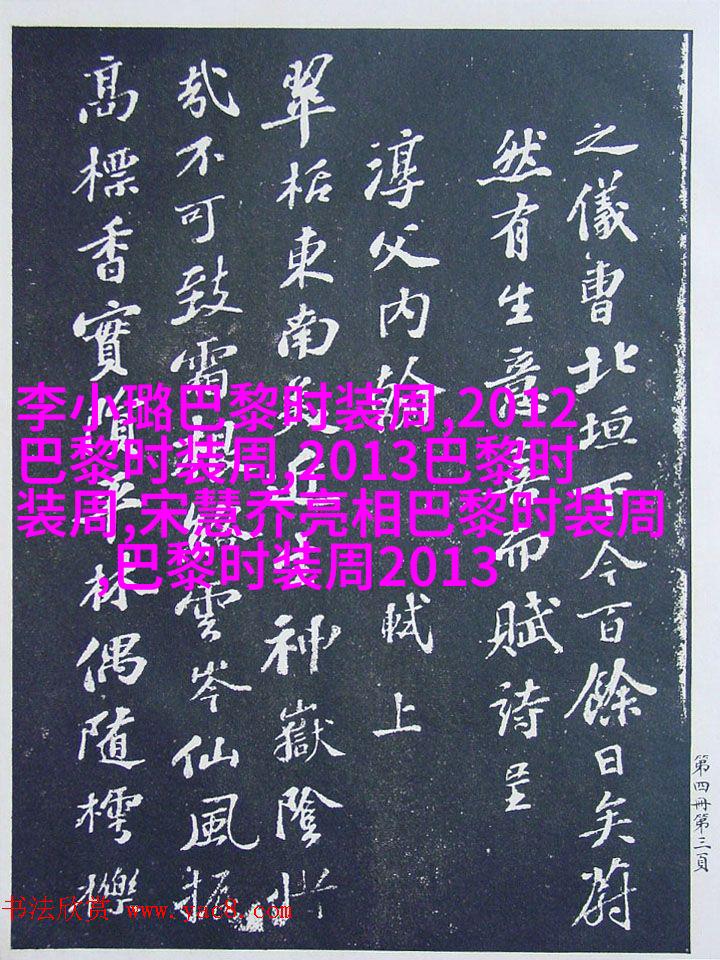 之儀曹北垣下今百餘日矣蔚
然有生意喜而賦詩呈
淳父内翰 軾上
翠栝東南美近生神嶽陰惜
哉不可致霜根絡雲岑仙風振
高標香實隕平林偶隨樗櫟
李小璐巴黎时装周,2012
巴黎时装周,2013巴黎时
装周,宋慧乔亮相巴黎时装周
,巴黎时装周2013
第四冊第三頁
书法欣赏 www.yac8.com